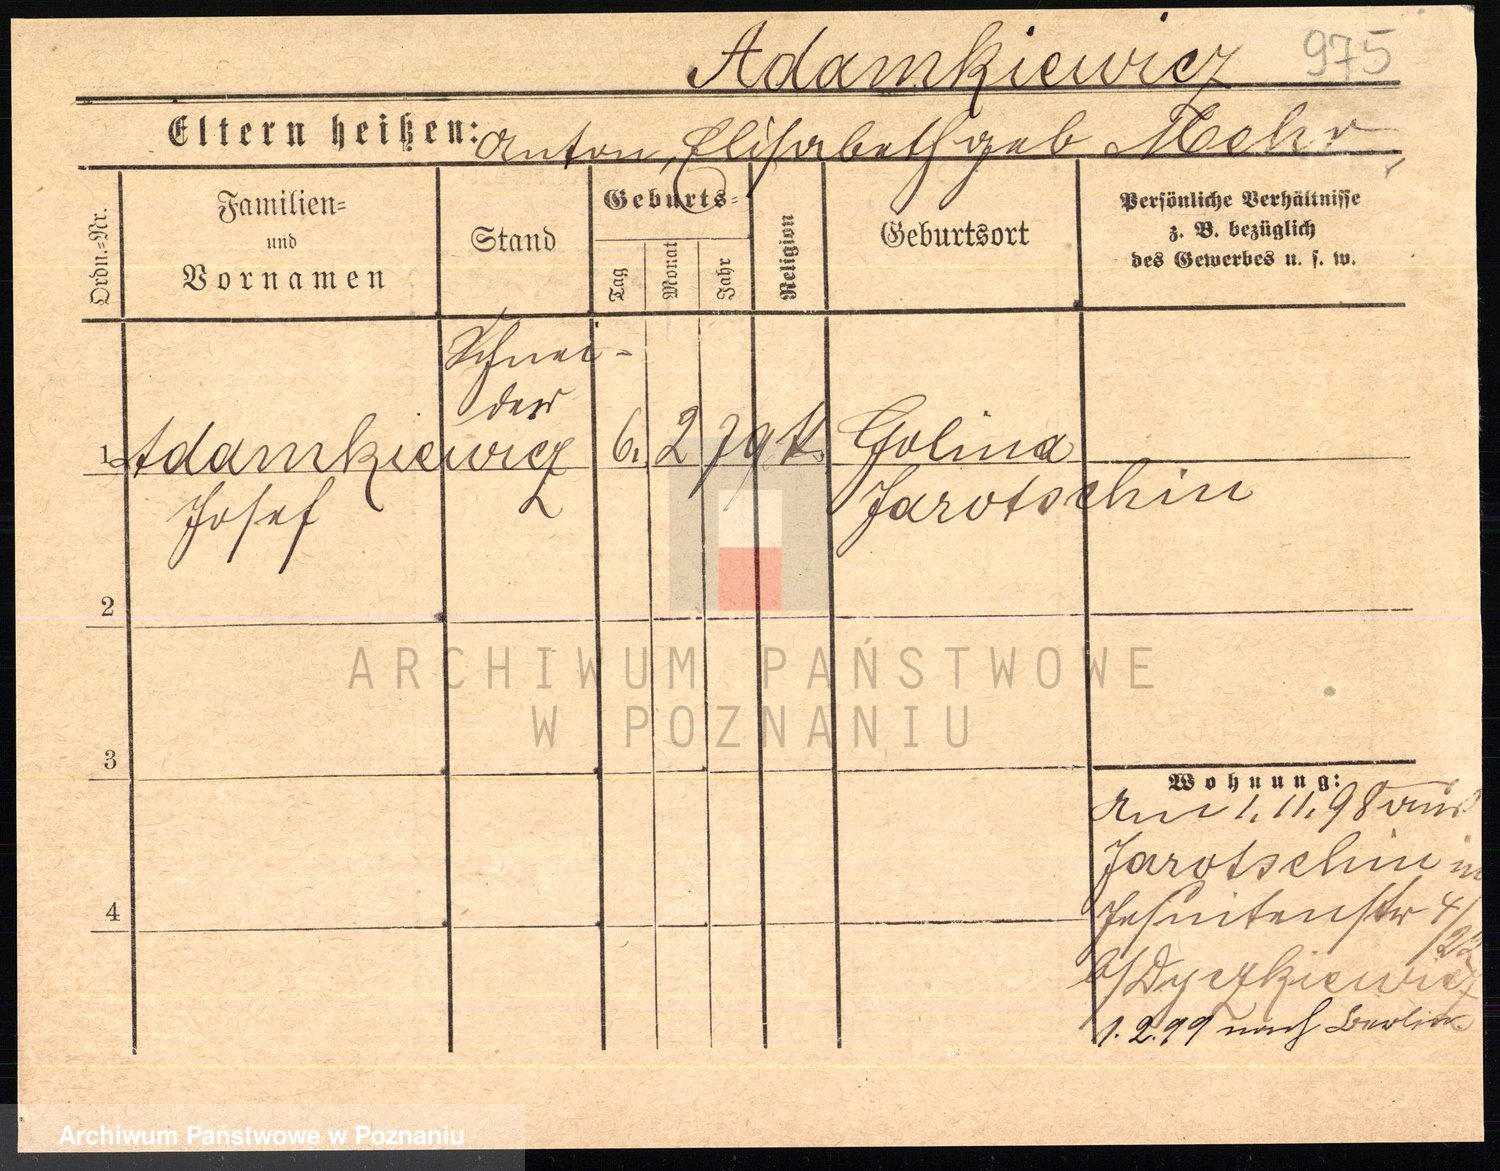 Adamkiewicz 975
Eltern heißen: Anton, Elisabeth geb Mehr
Ordn.=Nr.
Familien=
und
Vornamen
Stand
Geburts=
Tag
Monat
Jahr
Religion
Geburtsort
Persönliche Verhältnisse
z. B. bezüglich
des Gewerbes u. s. w.
Schnei-
der
1 Adamkiewicz 6. 2 79 k. Golina
Josef Jarotschin
2
ARCHIWUM PAŃSTWOWE
W POZNANIU
3
Wohnung:
Am 1.11.98 aus
Jarotschin in
4
Jesuitenstr 4/
22
b/Dyczkiewicz
1.2.99 nach Berlin.
Archiwum Państwowe w Poznaniu